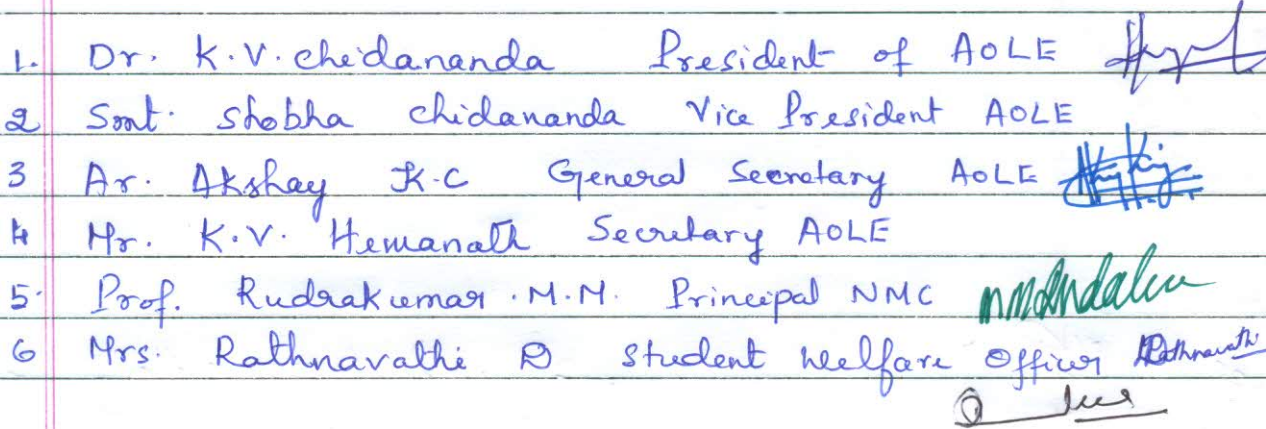 1. Dr. K.V. chidananda President of AOLE
2 Smt. shobha chidananda Vice President AOLE
3 Ar. Akshay K.C General Secretary AOLE
4 Mr. K.V. Hemanath Secretary AOLE
5. Prof. Rudrakumar .M.M. Principal NMC
6 Mrs. Rathnavathi D student welfare officer Rathnavathi